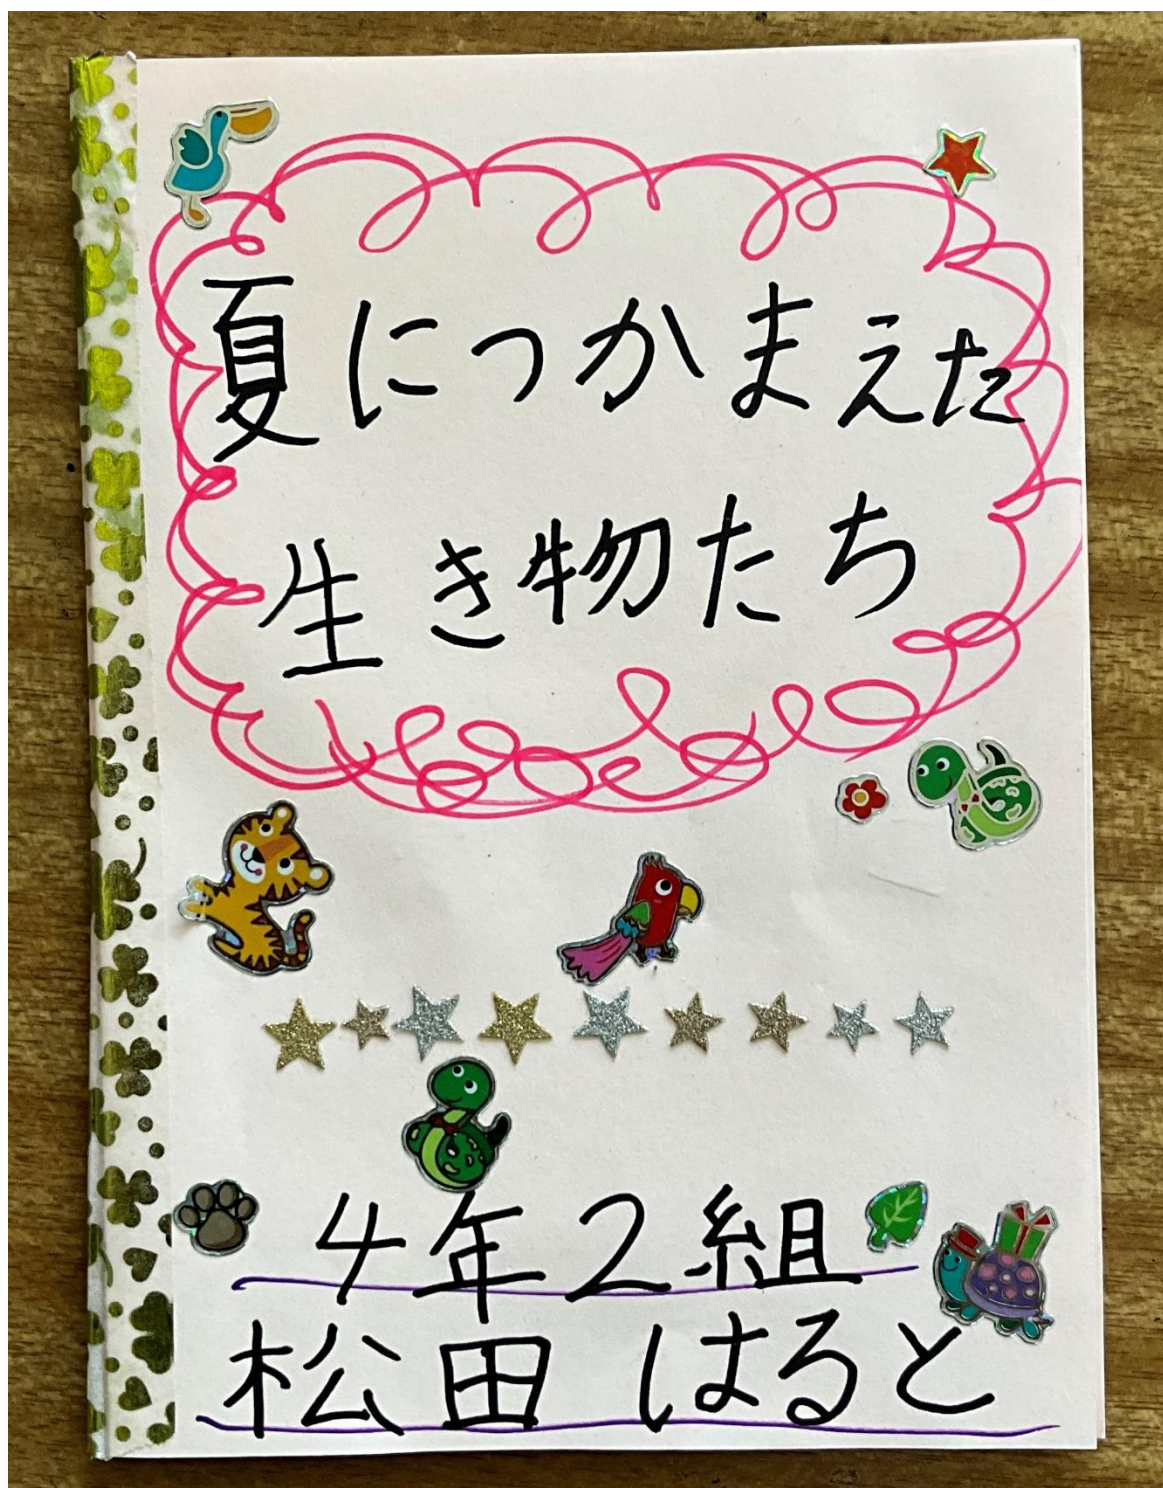 夏につかまえた
生き物たち
4年2組
松田 はると